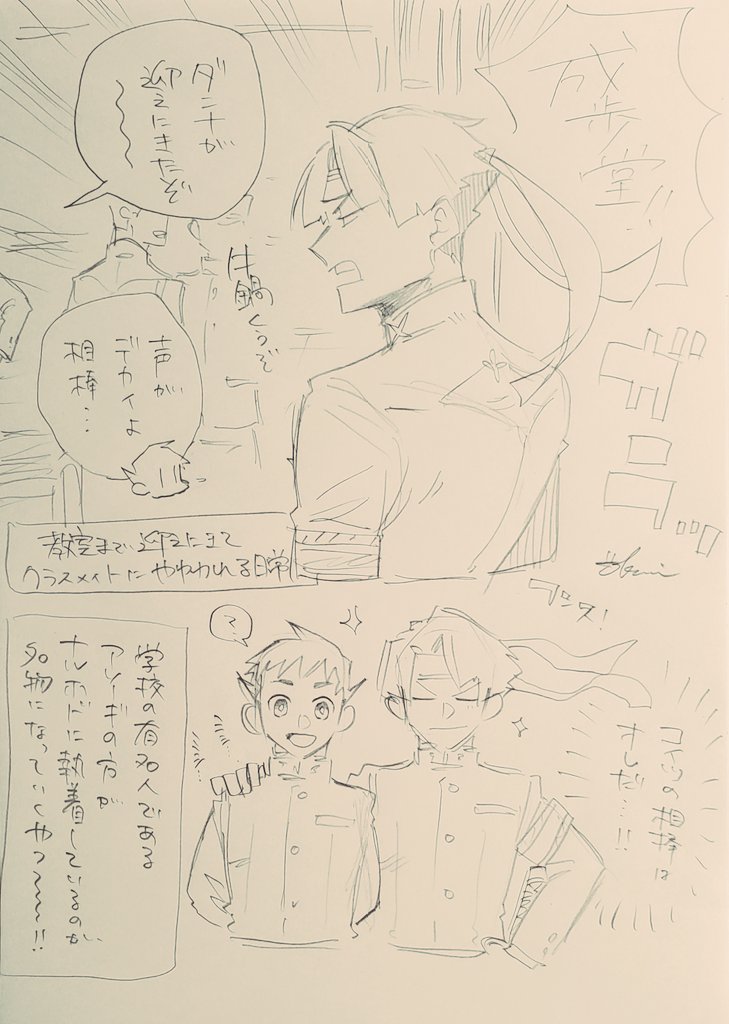 成歩堂ッ!!
ダンナが
迎えにきたぞ
牛鍋くうぞ
声が
デカイよ
相棒…
教室まで迎えにきて
クラスメイトにやいわれる日常
フンス!
?
コイツの相棒は
オレだ…!!
学校の有名人である
アソーギの方が
ナルホドに執着しているのが、
名物になっていくやつ〜〜!!